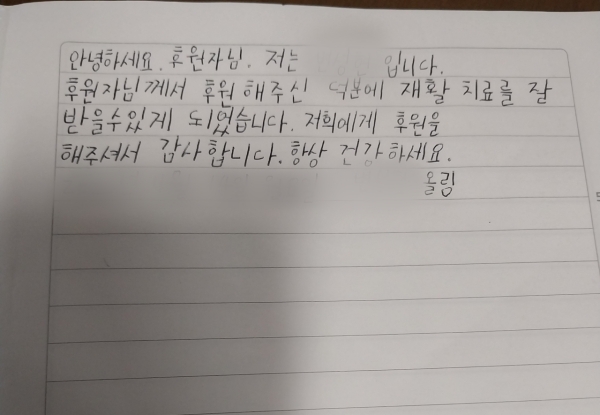 안녕하세요. 후원자님. 저는 입니다.
후원자님께서 후원 해주신 덕분에 재활 치료를 잘
받을수있게 되었습니다. 저희에게 후원을
해주셔서 감사합니다. 항상 건강하세요.
올림